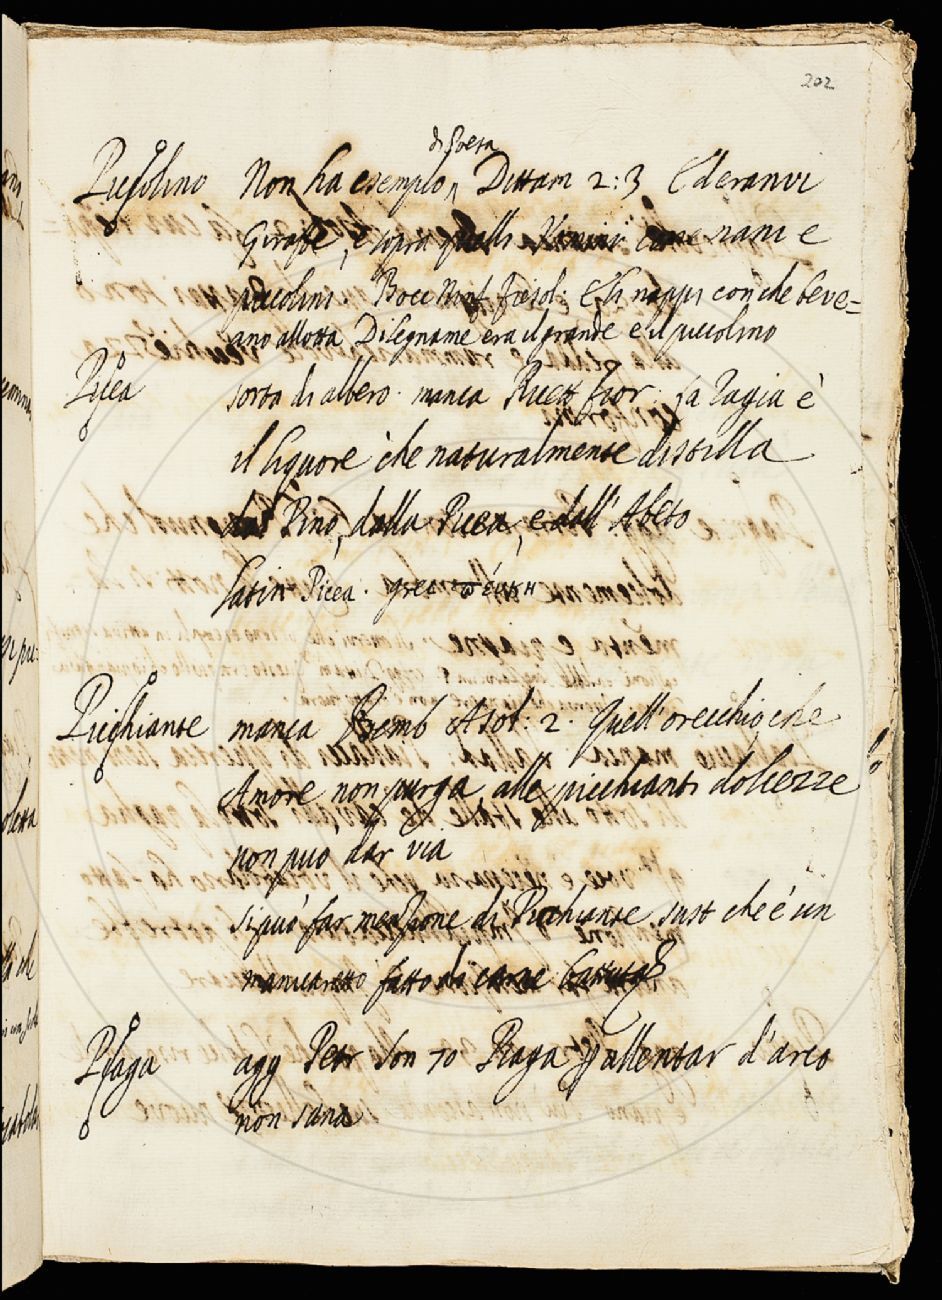 202
di Poeta
Piccolino Non ha esempio, Dittam 2:3 E v'eran vi
Giraffe, e sopra quelli Uomini come nani e
piccolini. Bocc Ninf. fiesol. E li nappi con che beve=
ano allotta Di legname era il grande e il piccolino
Picea sorta di albero. manca Ricett fior. la Ragia è
il liquore che naturalmente distilla
dal Pino, dalla Picea, e dall'Abeto
latin Picea. grec πεύκη
Picchiante manca Bemb Asol: 2. Quell'orecchio che
Amore non purga alle picchianti dolcezze
non può dar via
si può far menzione di Picchiante sust che è un
manicaretto fatto di carne battuta
Piaga agg Petr Son 70 Piaga p allentar d'arco
non sana